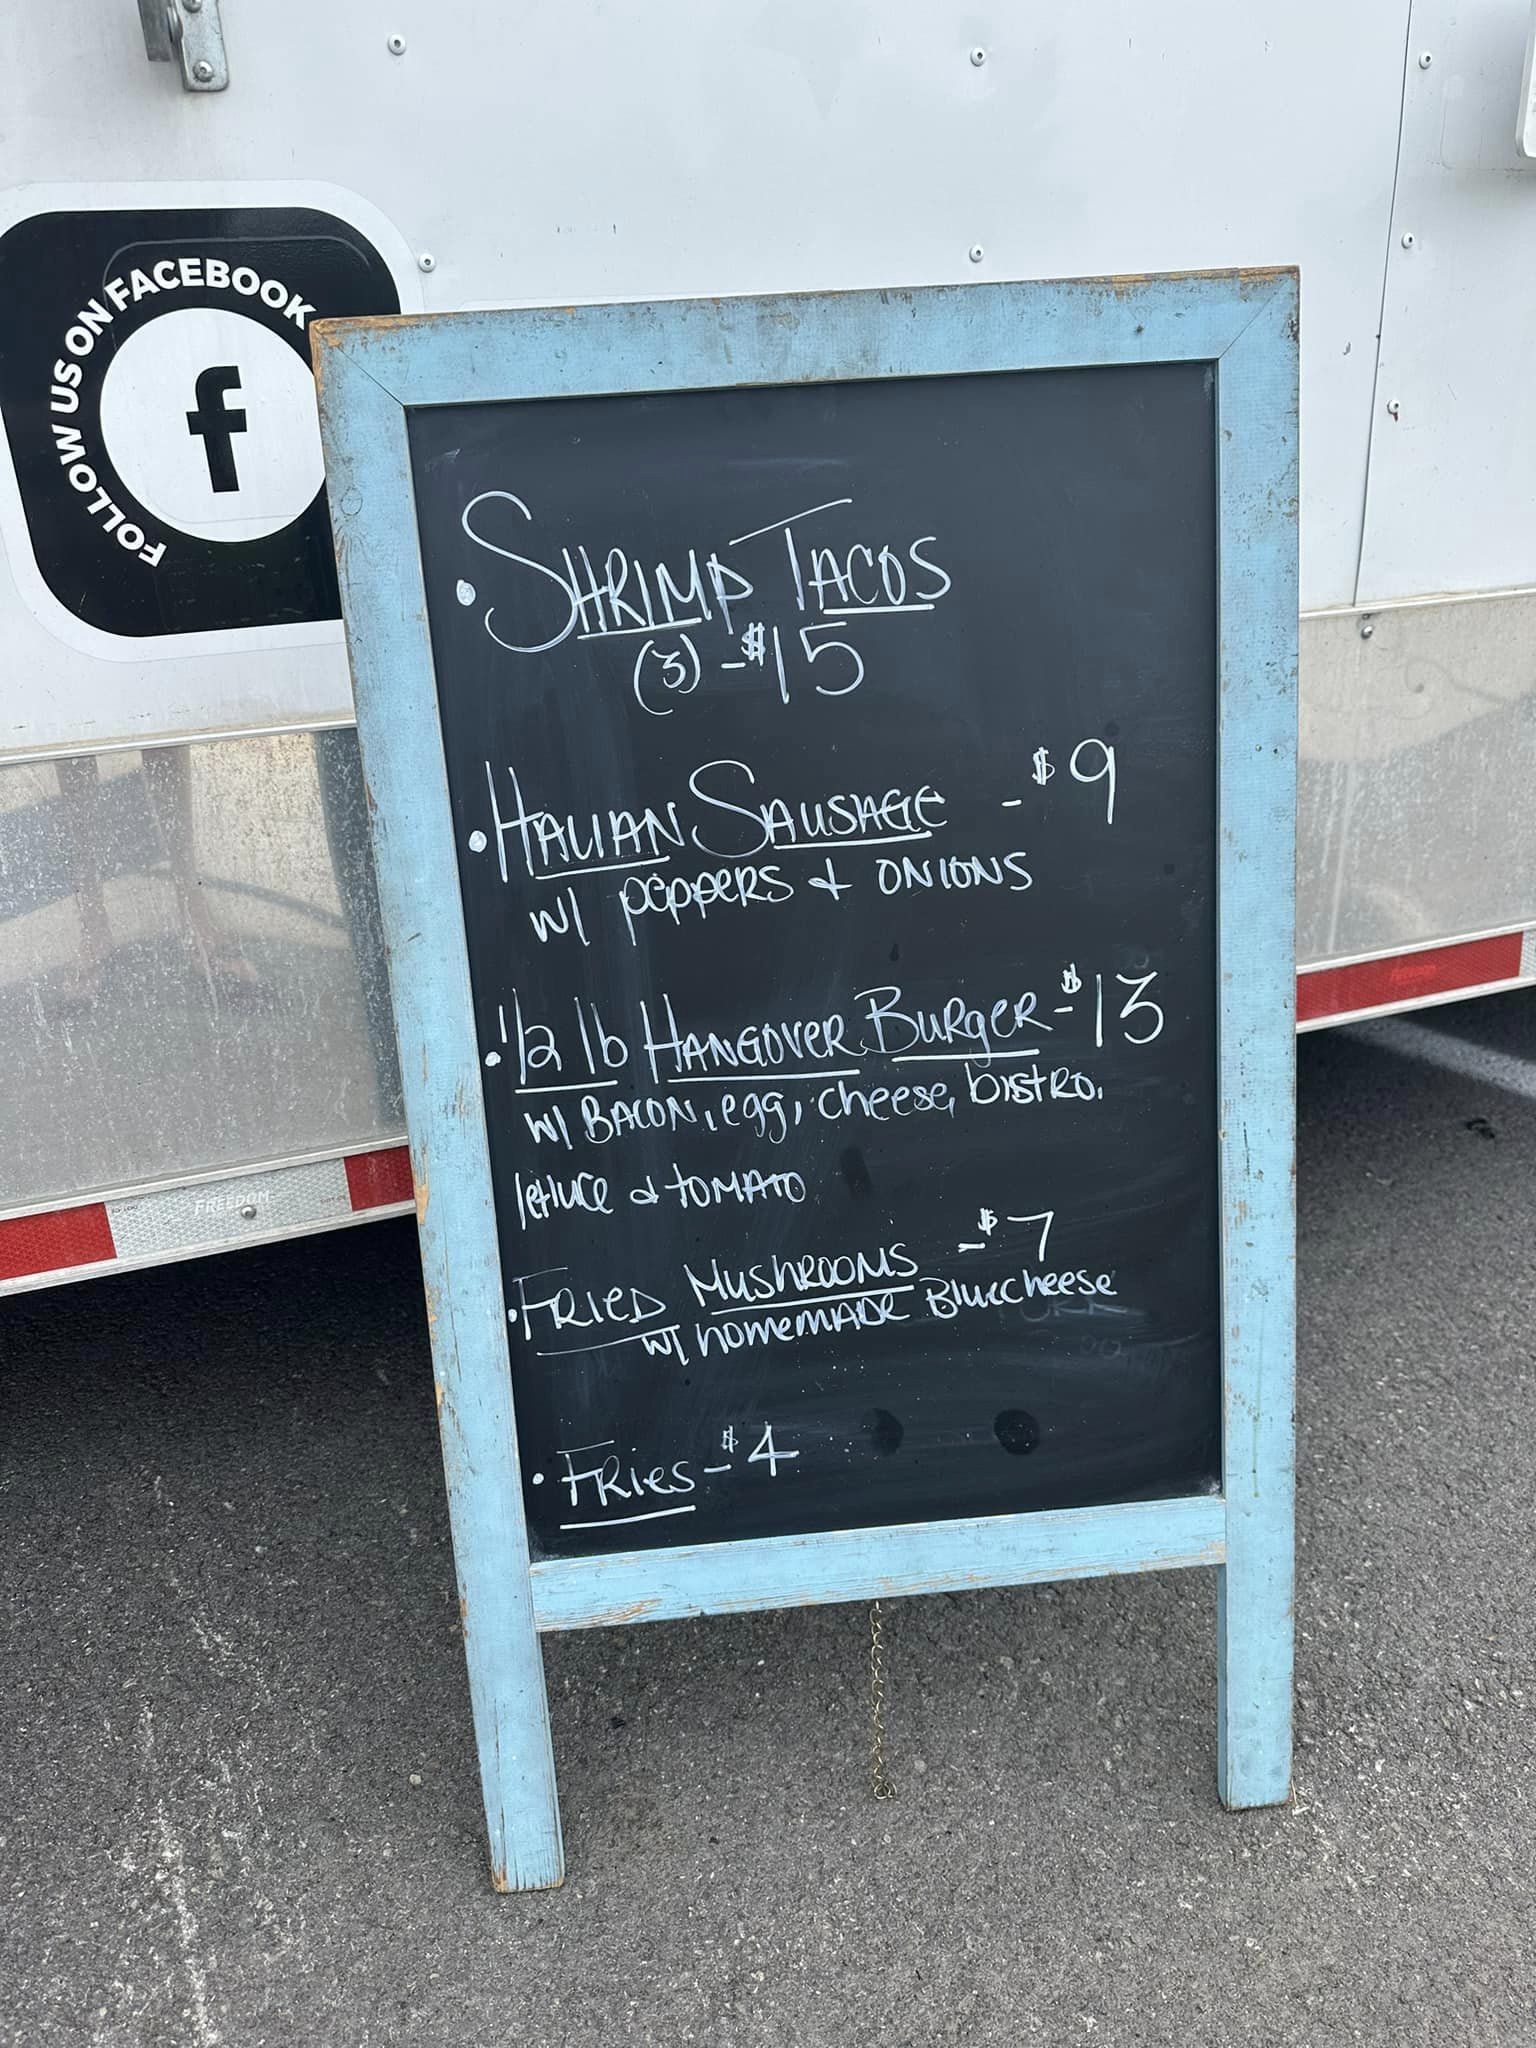 FOLLOW US ON FACEBOOK
f
• SHRIMP TACOS
(3) - $15
• ITALIAN SAUSAGE - $9
w/ PEPPERS & ONIONS
• 1/2 lb HANGOVER BURGER - $13
w/ BACON, egg, cheese, bistro,
lettuce & TOMATO
• FRIED MUSHROOMS - $7
w/ homemade Bluecheese
• FRIES - $4
FREEDOM